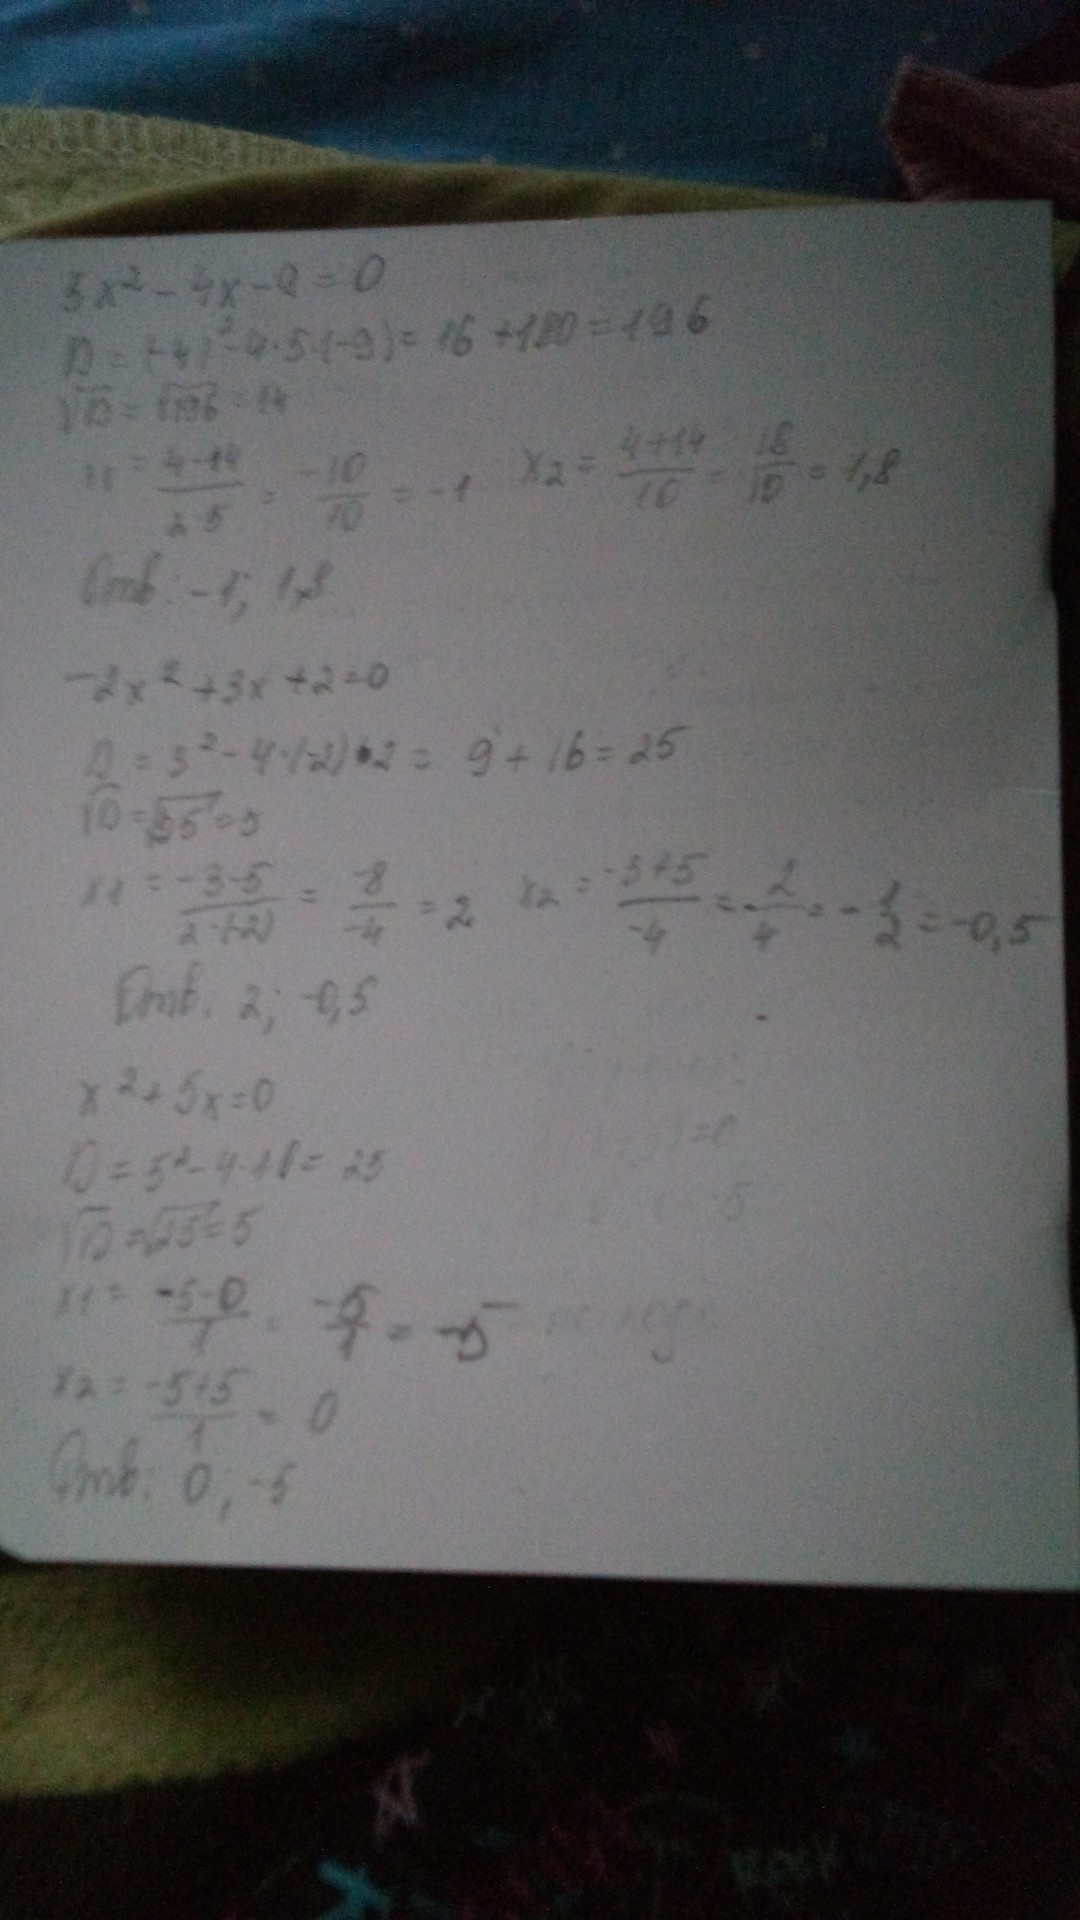 5x² - 4x - 9 = 0
D = (-4)² - 4·5·(-9) = 16 + 180 = 196
√D = √196 = 14
x1 = (4-14)/(2·5) = -10/10 = -1 x2 = (4+14)/10 = 18/10 = 1,8
Отв: -1; 1,8
-2x² + 3x + 2 = 0
D = 3² - 4·(-2)·2 = 9 + 16 = 25
√D = √25 = 5
x1 = (-3-5)/(2·(-2)) = -8/-4 = 2 x2 = (-3+5)/-4 = -2/4 = -1/2 = -0,5
Отв: 2; -0,5
x² + 5x = 0
D = 5² - 4·1·0 = 25
√D = √25 = 5
x1 = (-5-0)/1 = -5/1 = -5
x2 = (-5+5)/1 = 0
Отв: 0; -5